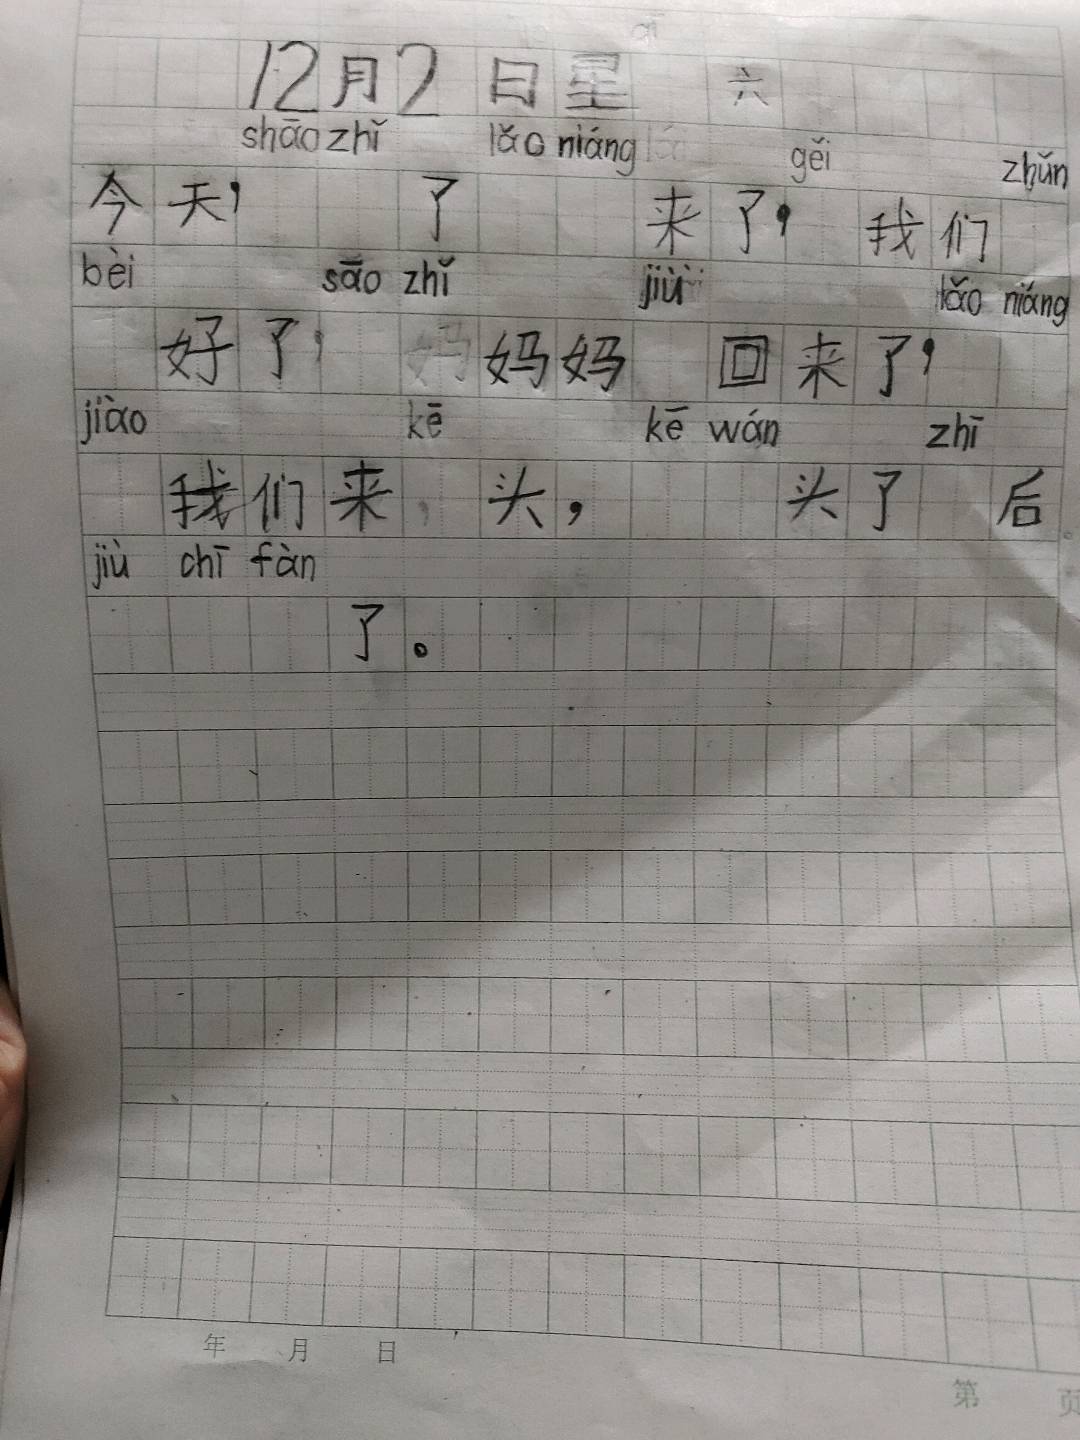 12月2日星 六
shāo zhǐ lǎo niáng gěi zhǔn
今天, 了 来了,我们
bèi sāo zhǐ jiù lǎo niáng
好了, 妈妈 回来了,
jiào kē kē wán zhī
我们来, 头, 头了 后
jiù chī fàn
了。
年 月 日
第 页